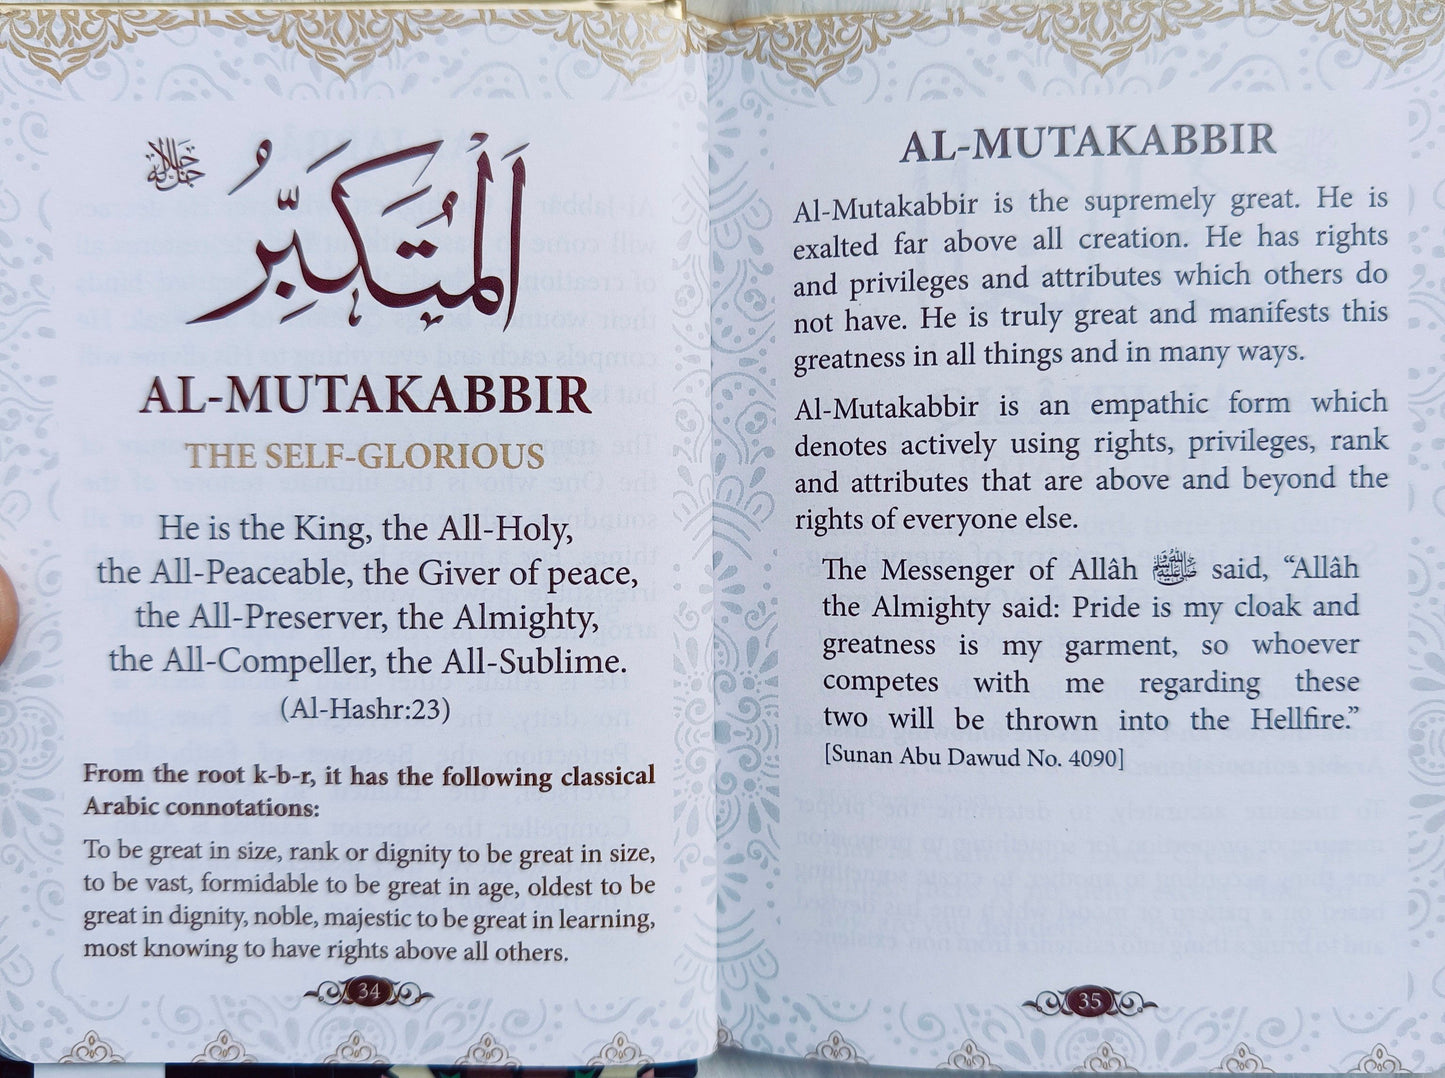 الْمُتَكَبِّرُ جل جلاله
AL-MUTAKABBIR
THE SELF-GLORIOUS
He is the King, the All-Holy,
the All-Peaceable, the Giver of peace,
the All-Preserver, the Almighty,
the All-Compeller, the All-Sublime.
(Al-Hashr:23)
From the root k-b-r, it has the following classical
Arabic connotations:
To be great in size, rank or dignity to be great in size,
to be vast, formidable to be great in age, oldest to be
great in dignity, noble, majestic to be great in learning,
most knowing to have rights above all others.
34
AL-MUTAKABBIR
Al-Mutakabbir is the supremely great. He is
exalted far above all creation. He has rights
and privileges and attributes which others do
not have. He is truly great and manifests this
greatness in all things and in many ways.
Al-Mutakabbir is an empathic form which
denotes actively using rights, privileges, rank
and attributes that are above and beyond the
rights of everyone else.
The Messenger of Allâh ﷺ said, “Allâh
the Almighty said: Pride is my cloak and
greatness is my garment, so whoever
competes with me regarding these
two will be thrown into the Hellfire.”
[Sunan Abu Dawud No. 4090]
35